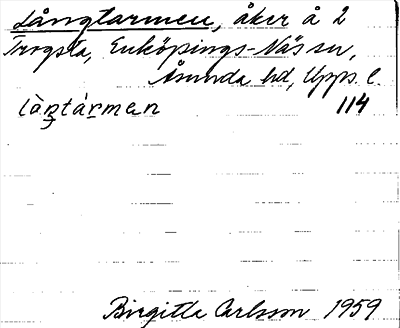 Långtarmen, åker å 2
Trogsta, Enköpings-Näs sn,
Åsunda hd, Upps. l.
làŋtármen 114
Birgitta Carlsson 1959